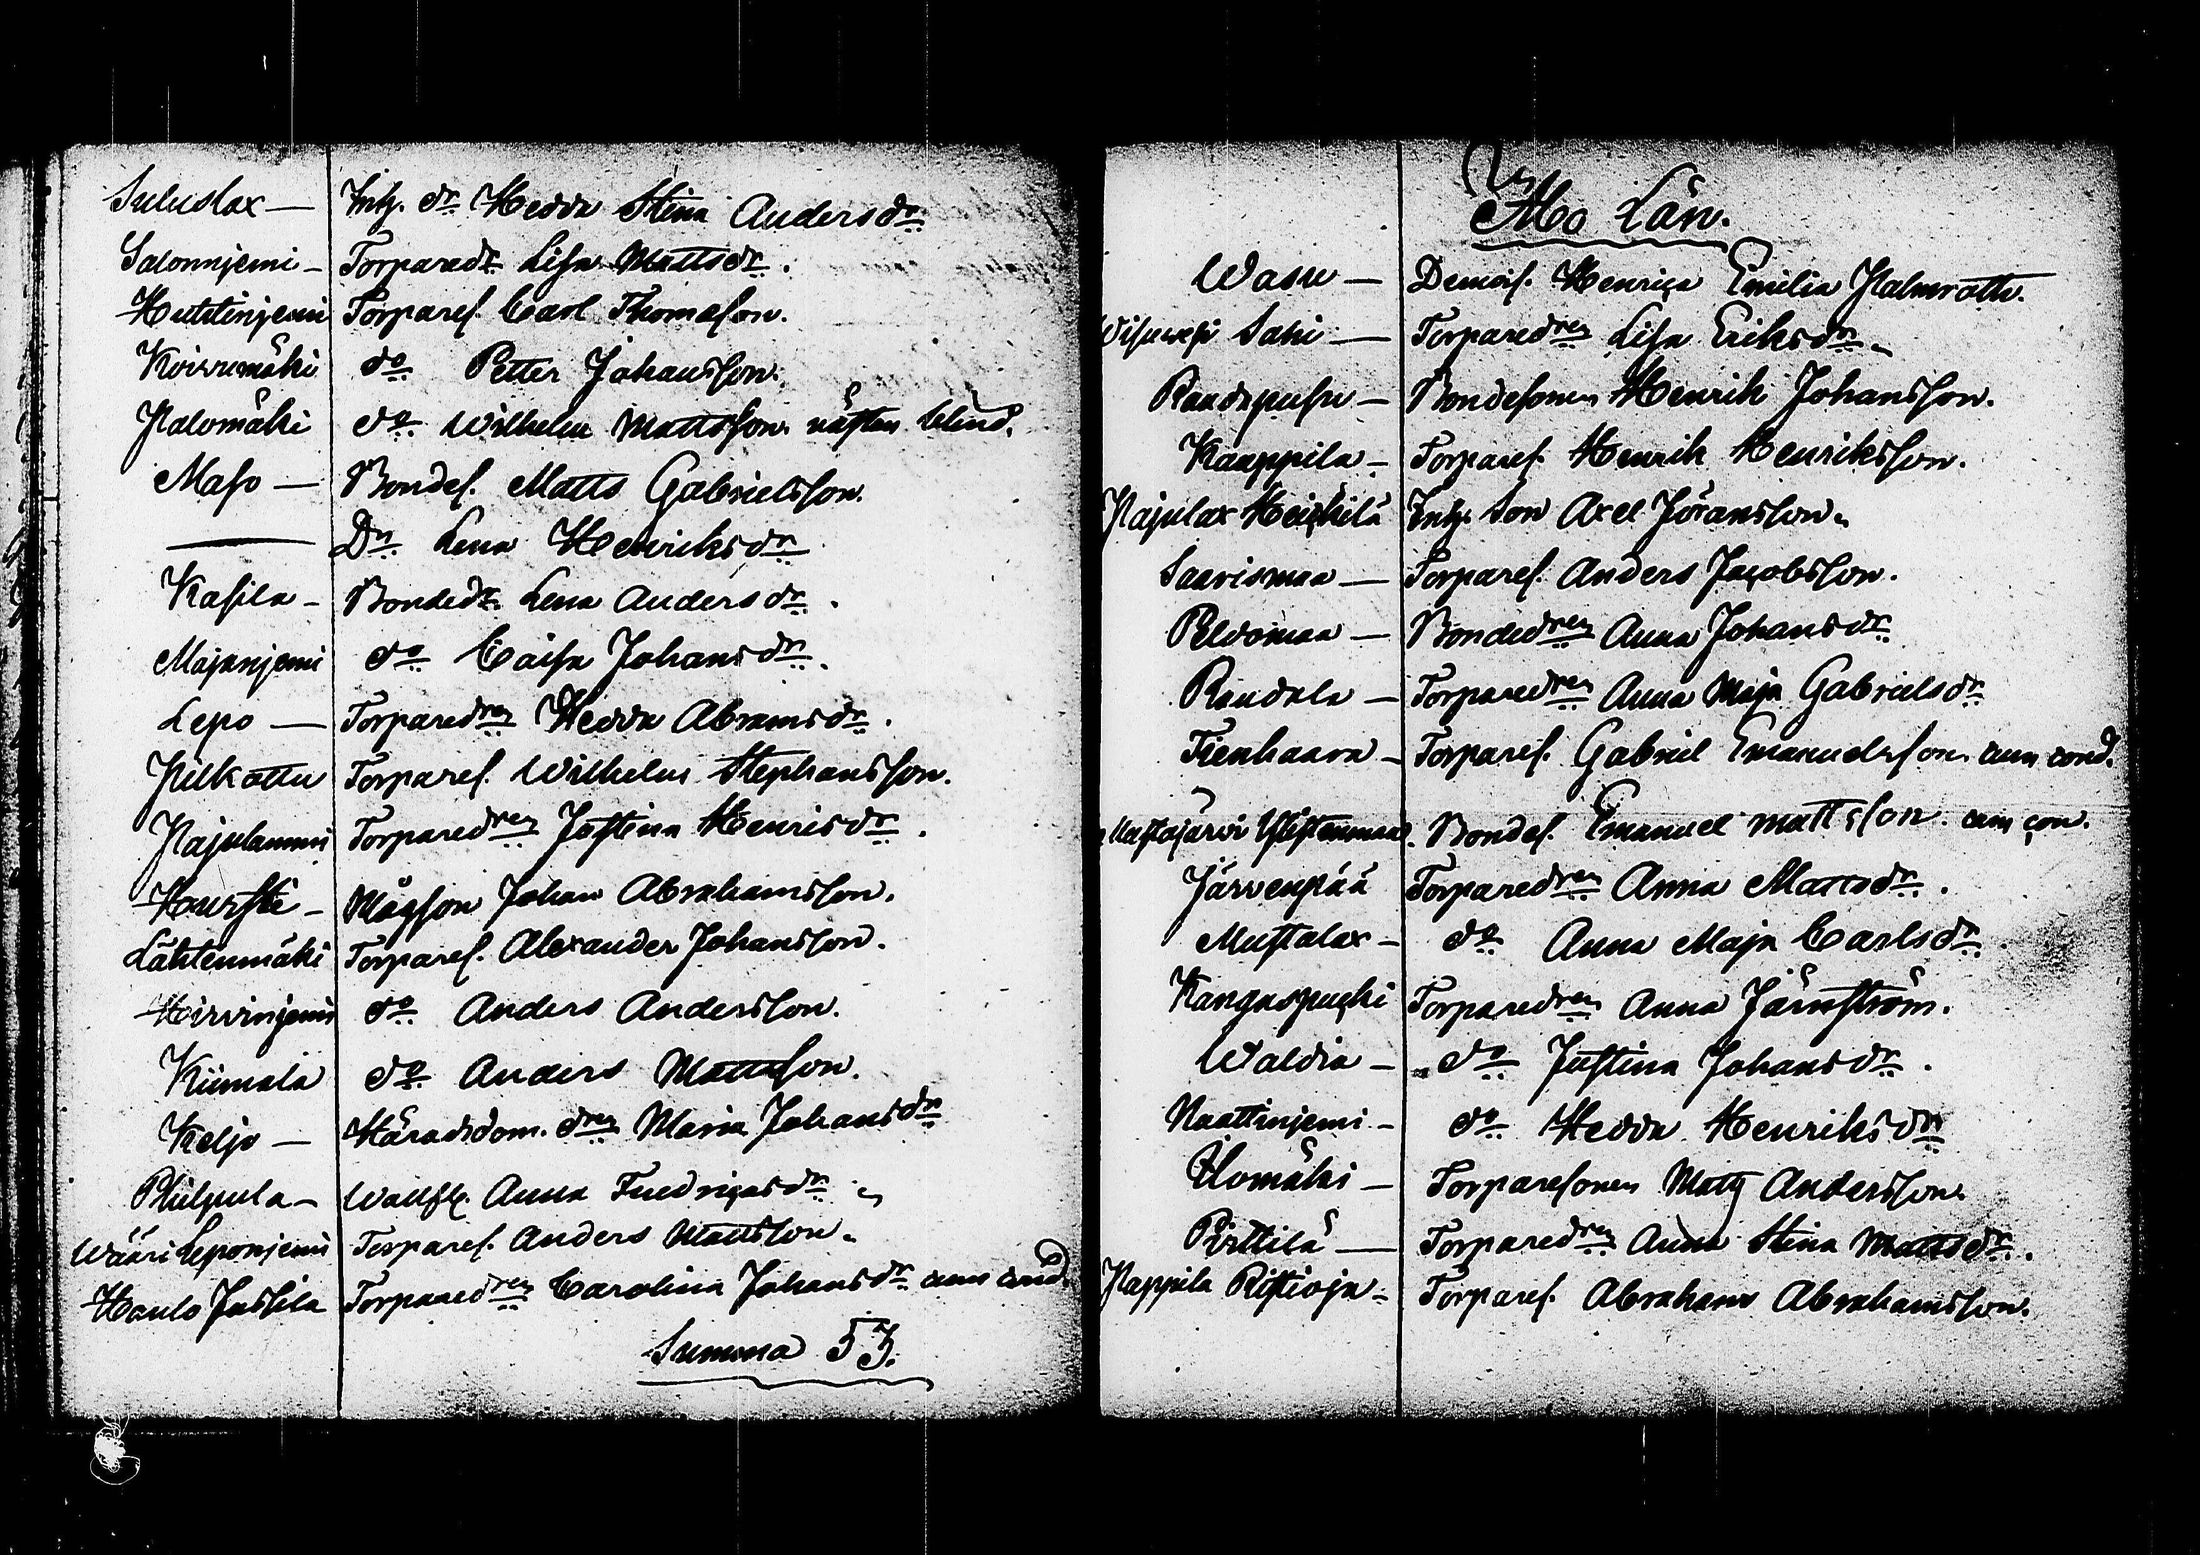 Suluslax — Inh. dr Hedda Stina Andersdr
Salonnjemi — Torparedr Lisa Mattsdr.
Huttinjemi Torparef. Carl Thomasson.
Koivumäki do Petter Johansson.
Palomäki do Wilhelm Mattsson. nästan blind.
Maso — Bondef. Matts Gabrielsson.
— Dr. Lena Henriksdr
Kasila — Bondedr Lena Andersdr.
Majanjemi do Caisa Johansdr.
Lepo — Torparedren Hedda Abramsdr.
Pilkottu Torparef. Wilhelm Stephansson.
Pajulammi Torparedren Justina Henrisdr.
Hursti — Mågson Johan Abrahamsson.
Lähtenmäki Torparef. Alexander Johansson.
Hirvinjemi do Anders Andersson.
Kiimala do Anders Mattsson.
Keljo — Häradsdom. dren Maria Johansdr
Philpula — Wallfl. Anna Fredricasdr
Wääri Leponjemi Torparef. Anders Mattsson.
Haulo Jussila Torparedren Carolina Johansdr cum cond.
Summa 53.
Mo Län.
Wasu — Demois. Henrica Emilia Palmroth.
Sahi — Torparedren Lisa Eriksdr
Bondesonen Henrik Johansson.
Kaappila — Torparef. Henrik Henriksson.
Pajulax Heickilä Inh. Son Axel Jöransson.
Saarismaa — Torparef. Anders Jacobsson.
Peldomaa — Bondedren Anna Johansdr
Randala — Torparedren Anna Maja Gabrielsdr
Tienhaara — Torparef. Gabriel Emanuelsson. cum cond.
Mustajärvi Bondef. Emanuel Mattsson. cum con.
Järvenpää Torparedren Anna Mattsdr.
Mustalax — do Anna Maja Carlsdr.
Kangaspuchi Torparedren Anna Järnström.
Waldia — do Justina Johansdr.
Naattinjemi — do Hedda Henriksdr
Ilomäki — Torparesonen Matts Andersson.
Pirttilä — Torparedren Anna Stina Mattsdr.
Pappila Ristioja — Torparef. Abraham Abrahamsson.